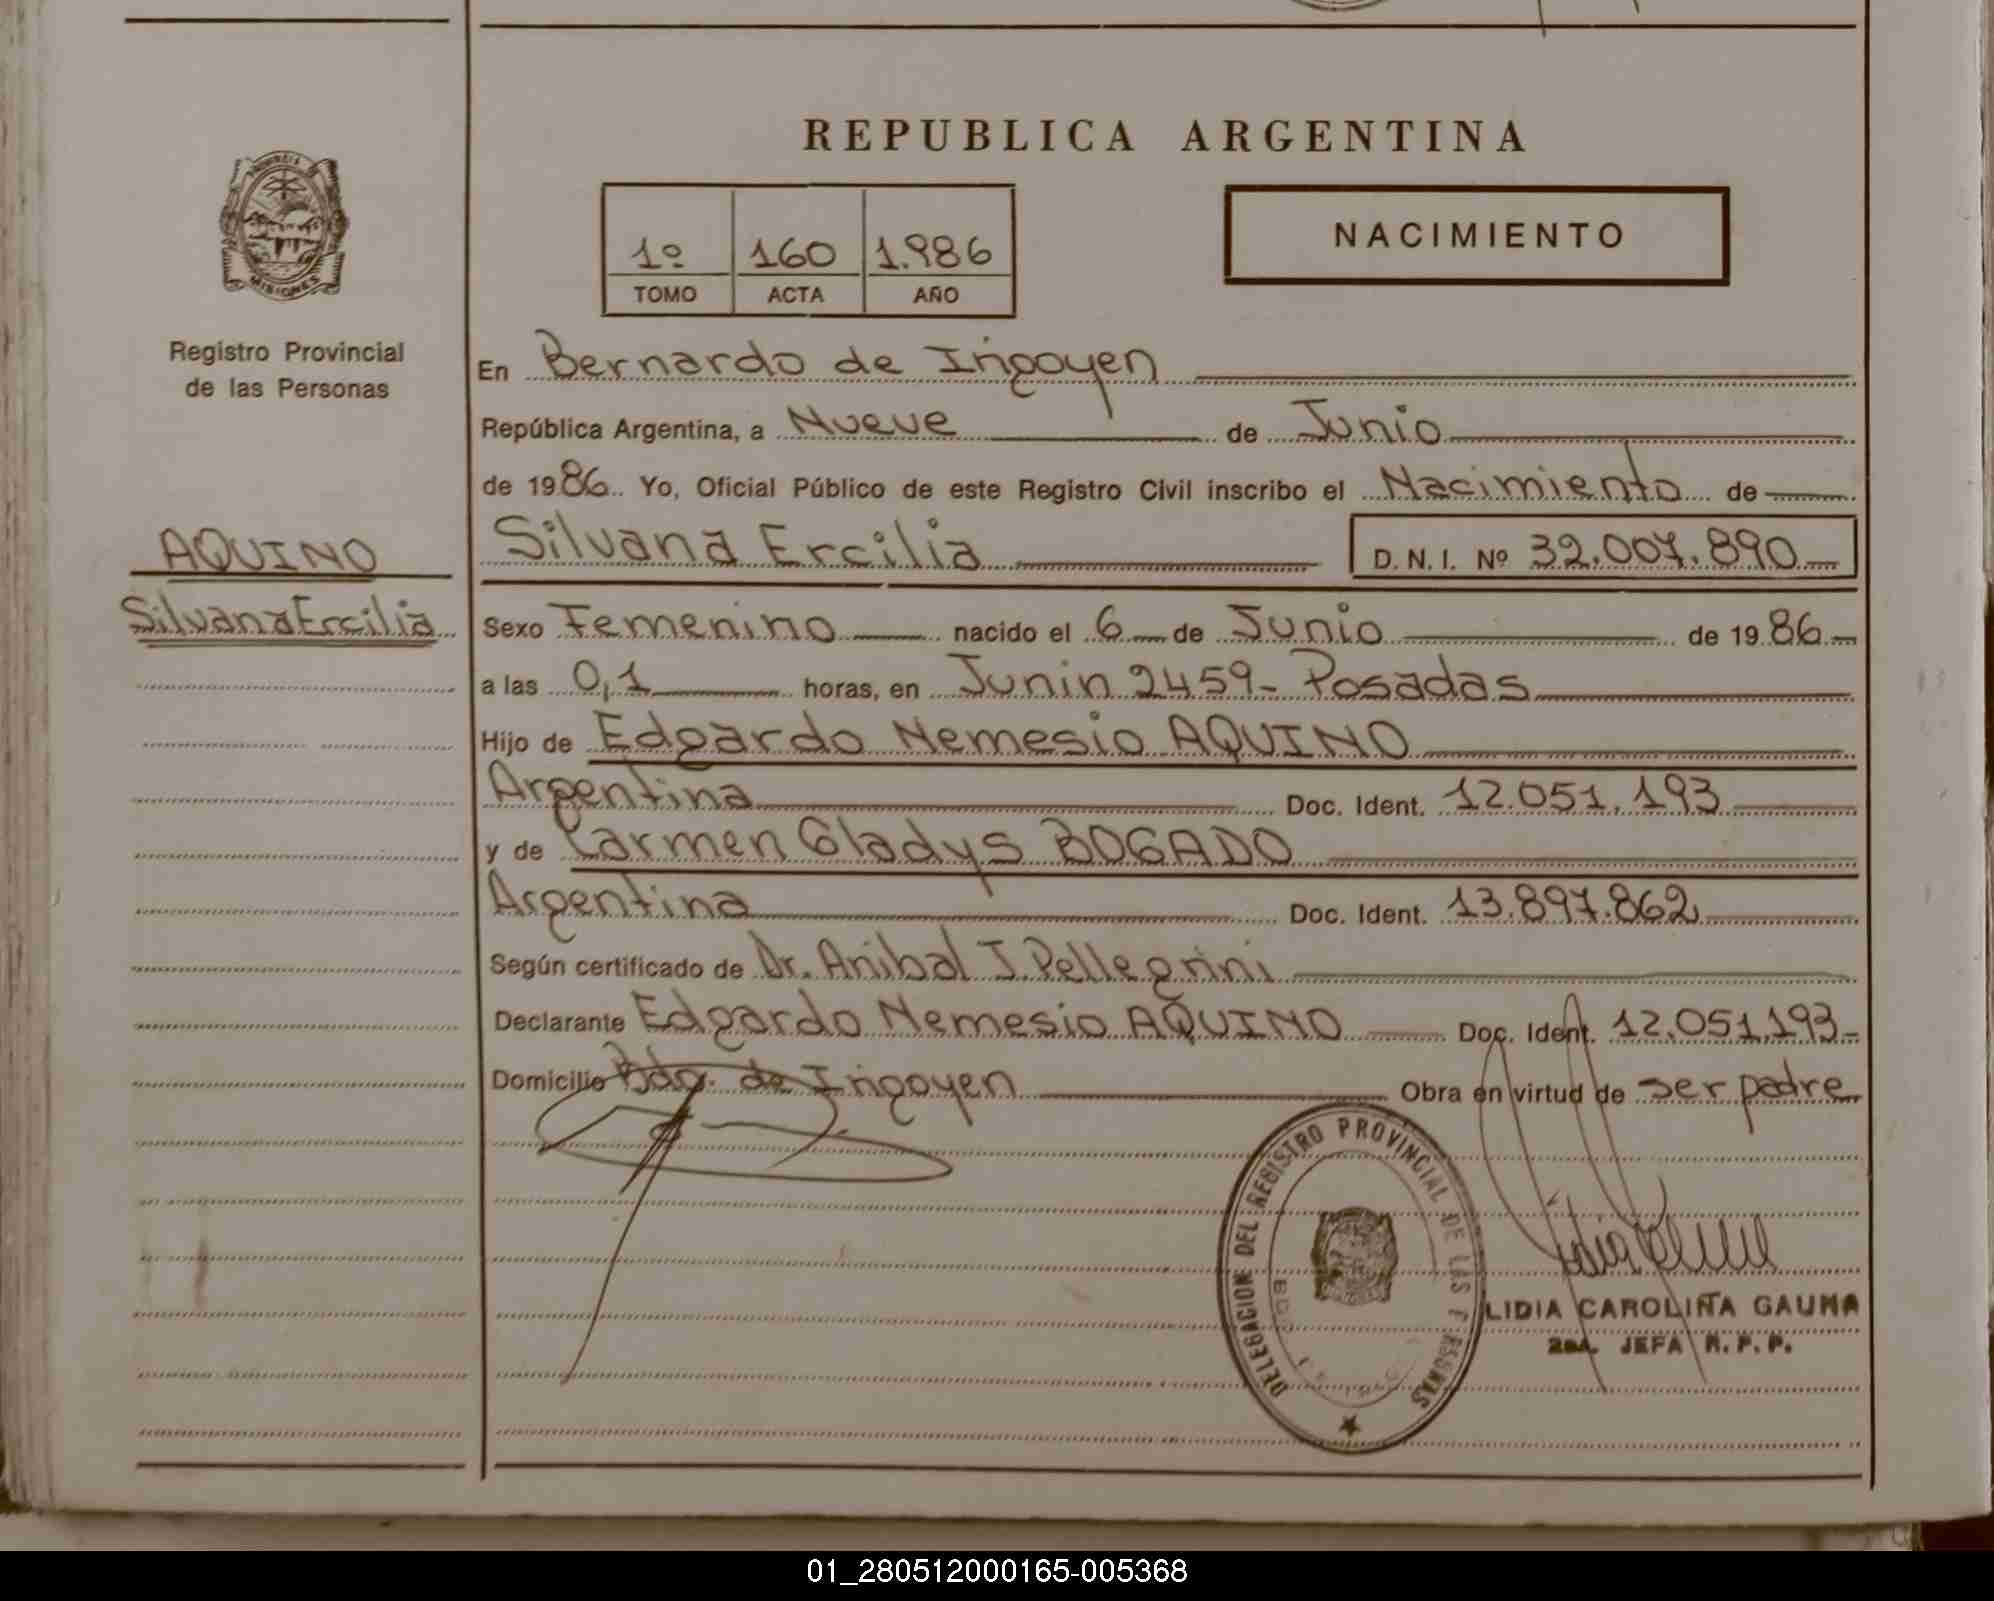 REPUBLICA ARGENTINA
PROVINCIA
MISIONES
Registro Provincial
de las Personas
1º 160 1.986
TOMO ACTA AÑO
NACIMIENTO
En Bernardo de Irigoyen
República Argentina, a Nueve de Junio
de 1986 Yo, Oficial Público de este Registro Civil inscribo el Nacimiento de
AQUINO
Silvana Ercilia
Silvana Ercilia D. N. I. Nº 32.007.890
Sexo Femenino nacido el 6 de Junio de 1986
a las 0,1 horas, en Junin 2459- Posadas
Hijo de Edgardo Nemesio AQUINO
Argentina Doc. Ident. 12.051.193
y de Carmen Gladys BOGADO
Argentina Doc. Ident. 13.897.862
Según certificado de Dr. Anibal J. Pellegrini
Declarante Edgardo Nemesio AQUINO Doc. Ident. 12.051.193
Domicilio Bdo. de Irigoyen Obra en virtud de ser padre
DELEGACION DEL REGISTRO PROVINCIAL DE LAS PERSONAS
LIDIA CAROLINA GAUNA
2da. JEFA R. P. P.
01_280512000165-005368